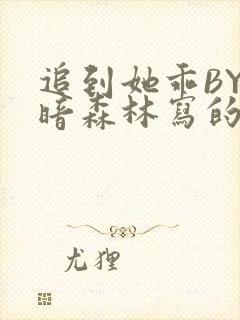 追到她乖BY
暗森林寫的
尤狸